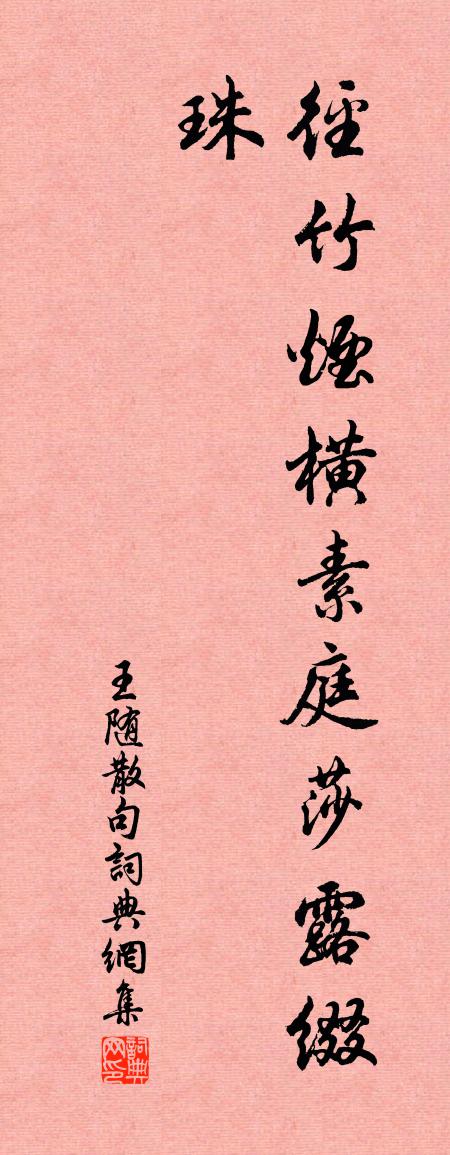 徑竹煙橫素庭莎露綴
珠
王随散句詞典網集
詞典网印